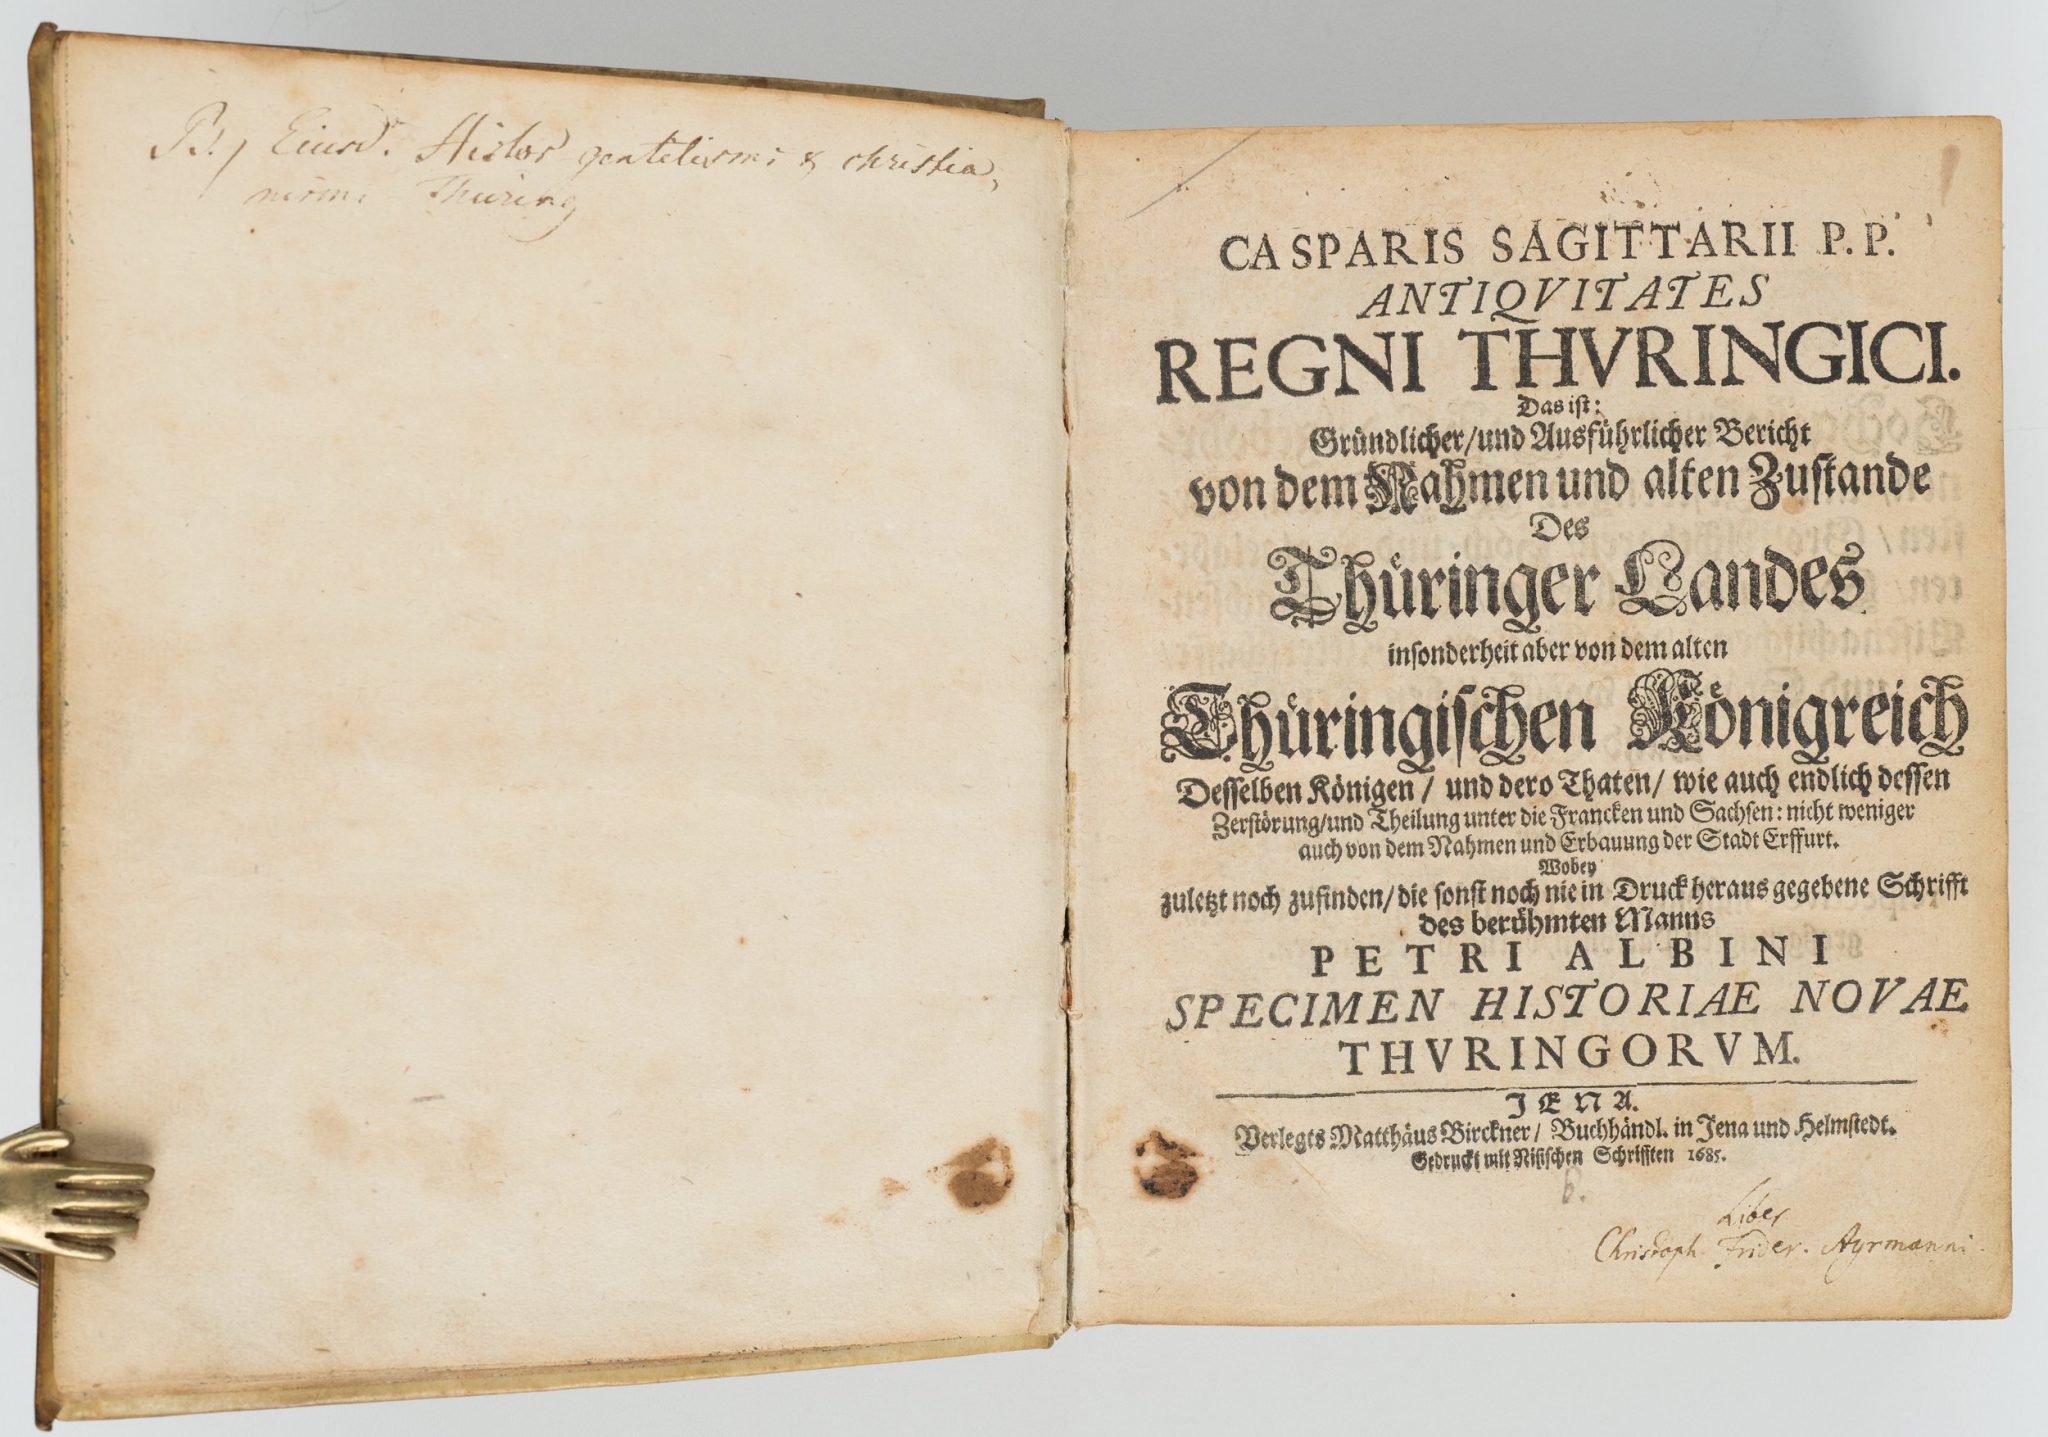 Eiusd. Histor gentilismi & christia,
nismi Thuring
CASPARIS SAGITTARII P.P.
ANTIQVITATES
REGNI THVRINGICI.
Das ist:
Gründlicher/und Ausführlicher Bericht
von dem Nahmen und alten Zustande
Des
Thüringer Landes
insonderheit aber von dem alten
Thüringischen Königreich
Desselben Königen/ und dero Thaten/ wie auch endlich dessen
Zerstörung/und Theilung unter die Francken und Sachsen: nicht weniger
auch von dem Nahmen und Erbauung der Stadt Erffurt.
Wobey
zuletzt noch zufinden/die sonst noch nie in Druck heraus gegebene Schrifft
des berühmten Manns
PETRI ALBINI
SPECIMEN HISTORIAE NOVAE
THVRINGORVM.
JENA.
Verlegts Matthäus Birckner/ Buchhändl. in Jena und Helmstedt.
Gedruckt mit Nisischen Schrifften 1685.
6.
Liber
Christoph. Frider. Ayrmanni.